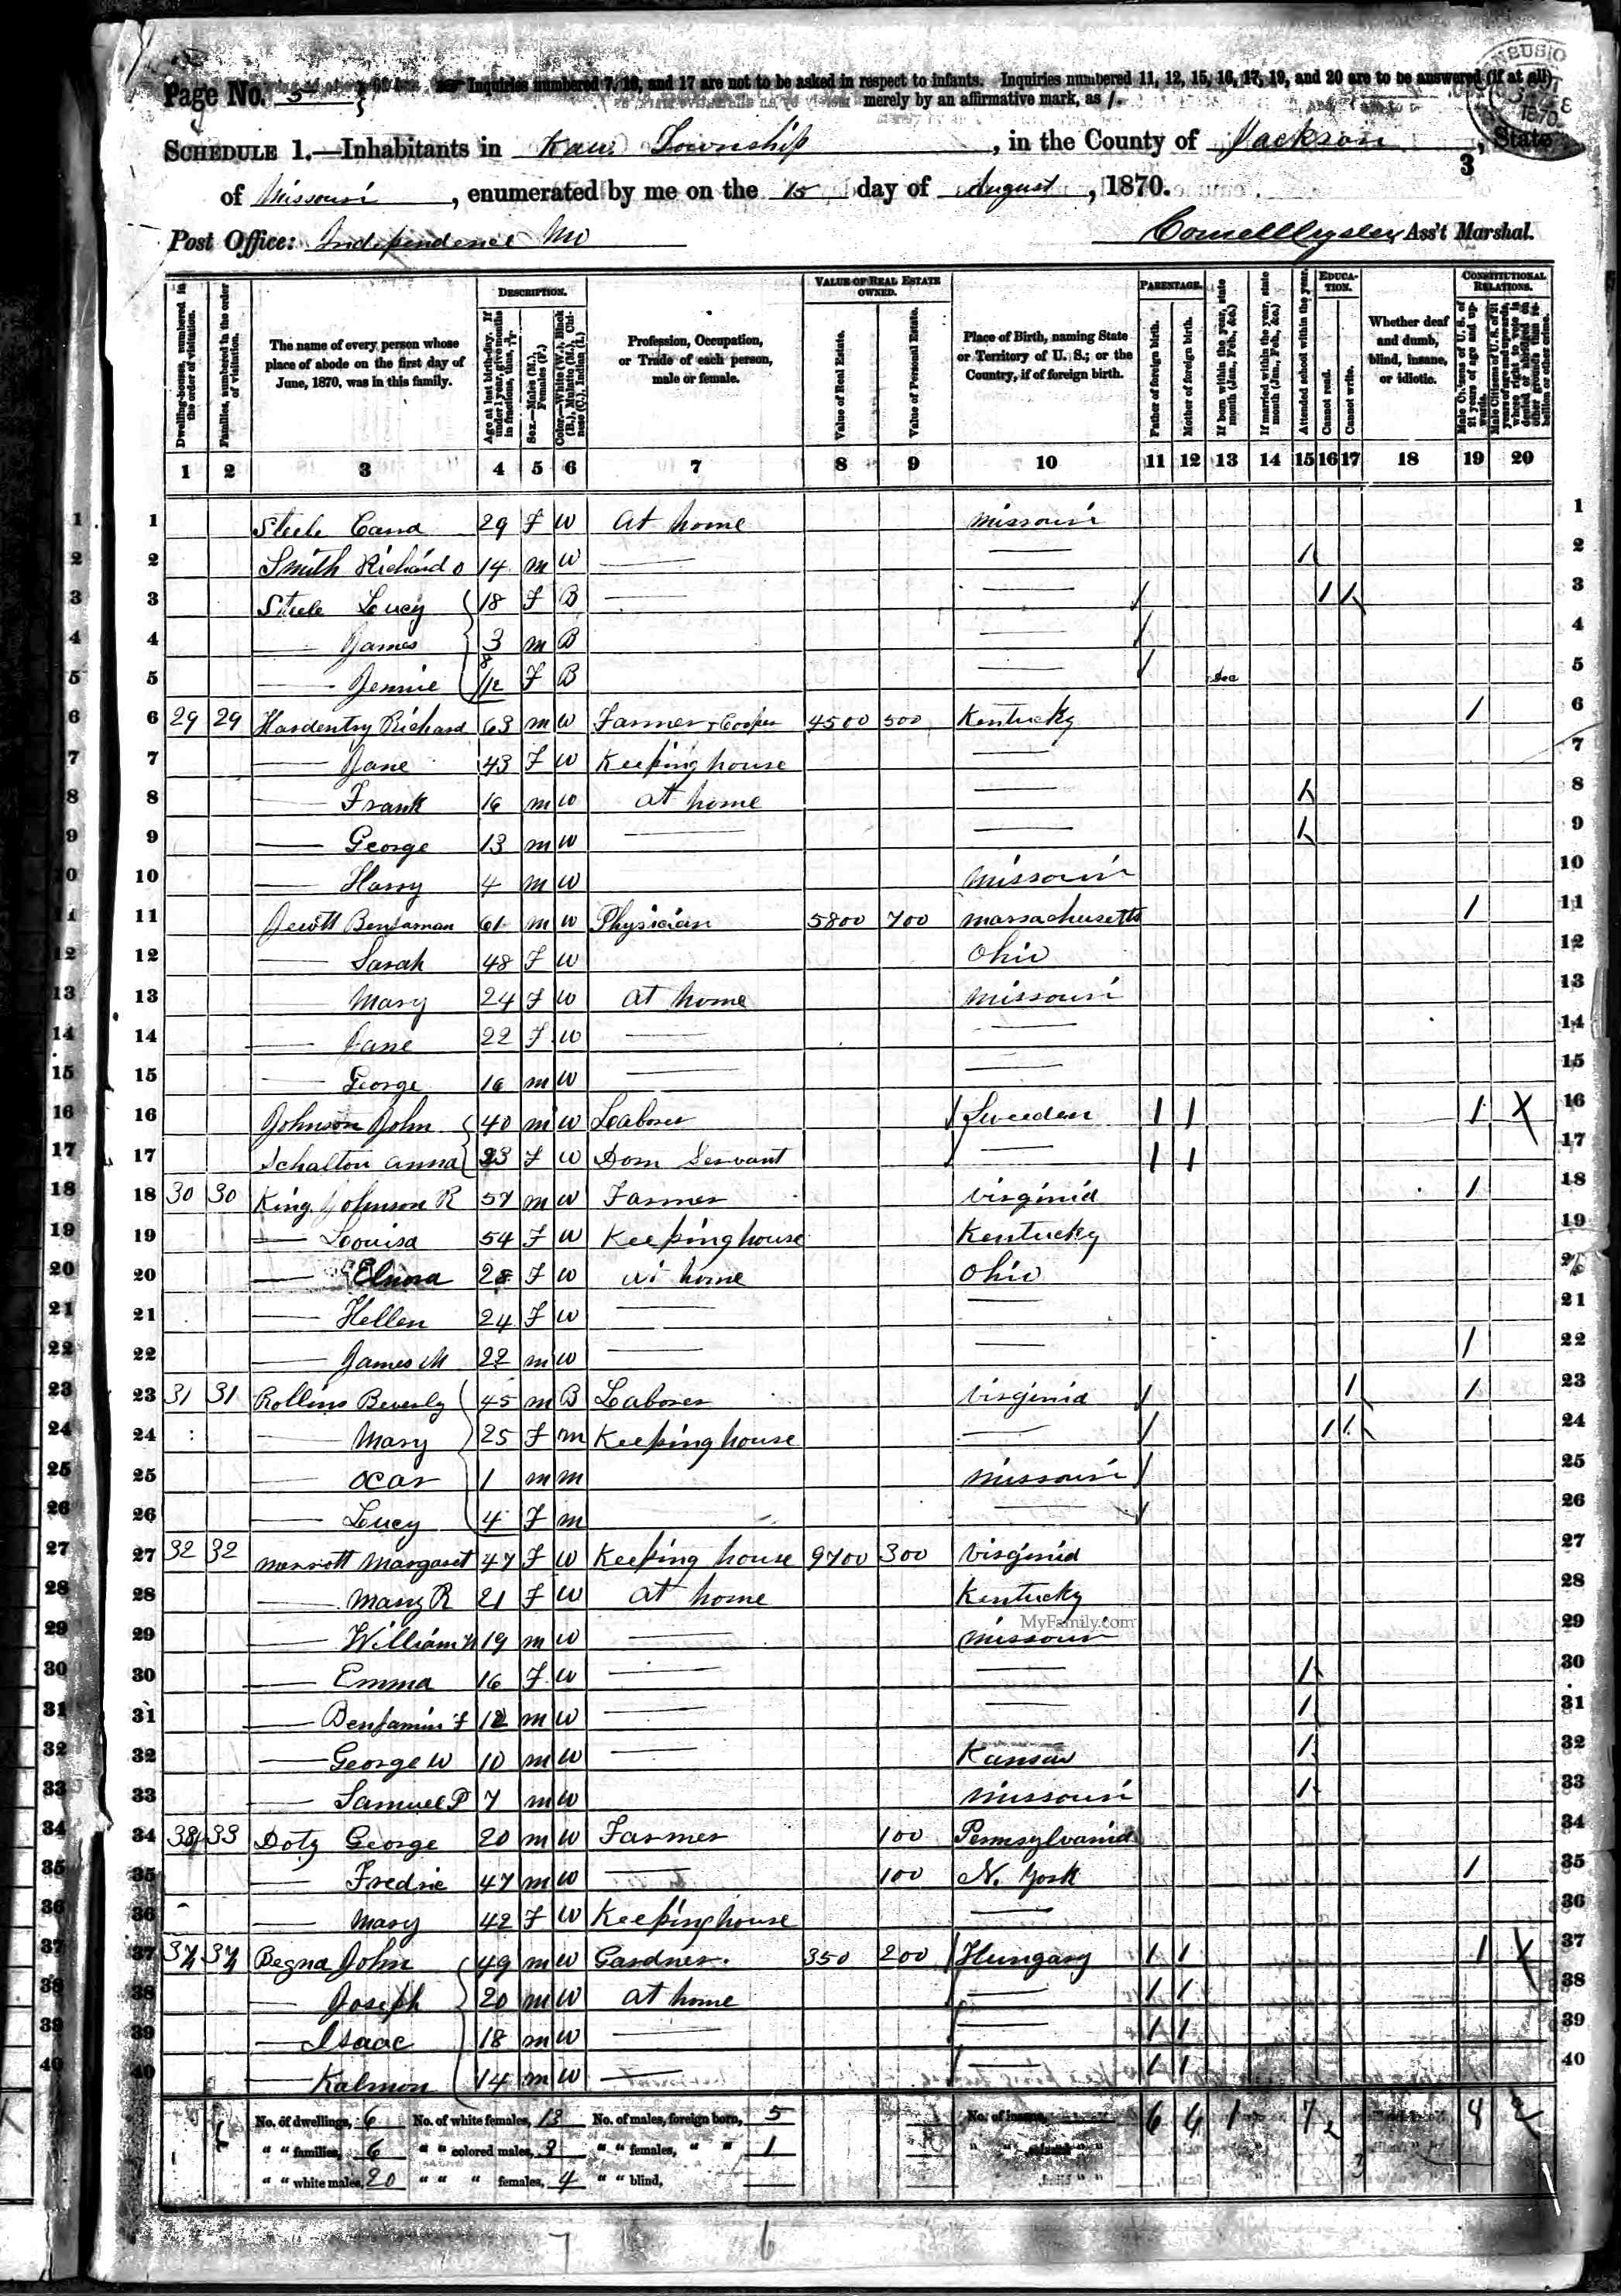 Page No. 5
Inquiries numbered 7, 16, and 17 are not to be asked in respect to infants. Inquiries numbered 11, 12, 15, 16, 17, 19, and 20 are to be answered (if at all)
merely by an affirmative mark, as /.
SCHEDULE 1.—Inhabitants in Kaw Township, in the County of Jackson, State
3
of Missouri, enumerated by me on the 15 day of August, 1870.
Post Office: Independence Mo
Ass't Marshal.
Dwelling-houses, numbered in the order of visitation.
Families, numbered in the order of visitation.
The name of every person whose place of abode on the first day of June, 1870, was in this family.
DESCRIPTION.
Age at last birth-day. If under 1 year, give months in fractions, thus,
Sex.—Males (M.), Females (F.)
Color.—White (W.), Black (B.), Mulatto (M.), Chinese (C.), Indian (I.)
Profession, Occupation, or Trade of each person, male or female.
VALUE OF REAL ESTATE OWNED.
Value of Real Estate.
Value of Personal Estate.
Place of Birth, naming State or Territory of U. S.; or the Country, if of foreign birth.
PARENTAGE.
Father of foreign birth.
Mother of foreign birth.
If born within the year, state month (Jan., Feb., &c.)
If married within the year, state month (Jan., Feb., &c.)
Attended school within the year.
EDUCATION.
Cannot read.
Cannot write.
Whether deaf and dumb, blind, insane, or idiotic.
CONSTITUTIONAL RELATIONS.
Male Citizens of U. S. of 21 years of age and upwards.
Male Citizens of U. S. of 21 years of age and upwards, where right to vote is denied or abridged on other grounds than rebellion or other crime.
1 2 3 4 5 6 7 8 9 10 11 12 13 14 15 16 17 18 19 20
1 Steele 29 F W At home Missouri 1
2 Smith Richard 14 m W — — / 2
3 Steele Lucy 18 F B — — / / / 3
4 — James 3 m B — / 4
5 — Jennie 8/12 F B — / Dec 5
6 29 29 Hardentry Richard 63 m W Farmer & Cooper 4500 500 Kentucky / 6
7 — Jane 43 F W Keeping house — 7
8 — Frank 16 m W at home — / 8
9 — George 13 m W — — / 9
10 — Harry 4 m W Missouri 10
11 Jewett Benjaman 61 m W Physician 5800 700 Massachusetts / 11
12 — Sarah 48 F W Ohio 12
13 — Mary 24 F W at home Missouri 13
14 — Jane 22 F W — — 14
15 — George 16 m W — — 15
16 Johnson John 40 m W Laborer Sweeden / / / X 16
17 Schalton Anna 23 F W Dom Servant — / / 17
18 30 30 King Johnson R 57 m W Farmer Virginia / 18
19 — Louisa 54 F W Keeping house Kentucky 19
20 — Elnora 28 F W at home Ohio 20
21 — Hellen 24 F W — — 21
22 — James M 22 m W — — / 22
23 31 31 Rollins Beverly 45 m B Laborer Virginia / / / 23
24 — Mary 25 F m Keeping house — / / / 24
25 — Ocar 1 m m Missouri / 25
26 — Lucy 4 F m — / 26
27 32 32 Merriott Margaret 47 F W Keeping house 9700 300 Virginia 27
28 — Mary R 21 F W at home Kentucky 28
MyFamily.com
29 — William 19 m W — Missouri 29
30 — Emma 16 F W — — / 30
31 — Benjamin F 12 m W — — / 31
32 — George W 10 m W — Kansas / 32
33 — Samuel P 7 m W Missouri / 33
34 33 33 Doty George 20 m W Farmer 100 Pennsylvania 34
35 — Fredric 47 m W — 100 N. York / 35
36 — Mary 42 F W Keeping house — 36
37 34 34 Begna John 49 m W Gardner. 350 200 Hungary / / / X 37
38 — Joseph 20 m W at home — / / 38
39 — Isaac 18 m W — — / / 39
40 — Kalmon 14 m W — — / / 40
No. of dwellings, 6 No. of white females, 13 No. of males, foreign born, 5 6 6 1 7
" " families, 6 " " colored males, 3 " " females, " " 1
" " white males, 20 " " " females, 4 " " blind, —